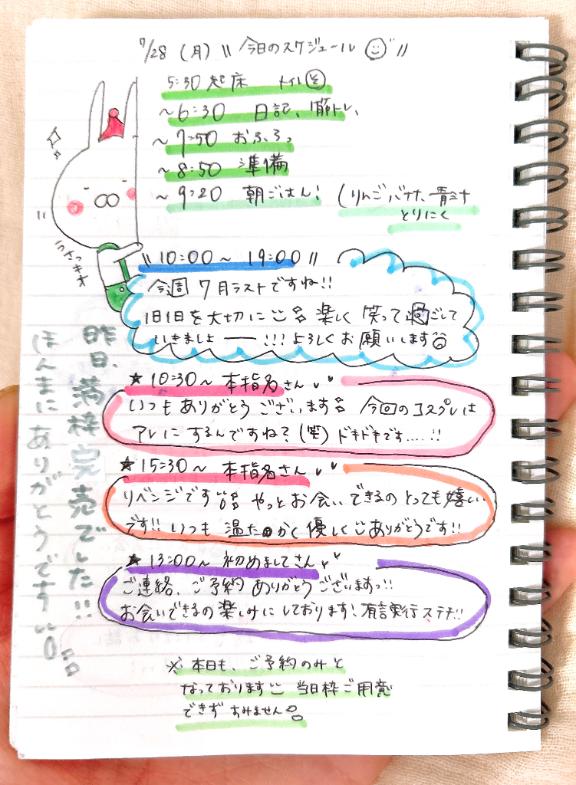 7/28 (月) \\ 今日のスケジュール //
5:30 起床
~6:30 日記、筋トレ、
~7:50 おふろっ
~8:50 準備
~9:20 朝ごはん!
(りんご バナナ、青汁
とりにく
うさっキオ
\\ 10:00~19:00 //
今週 7月ラストですね!!
1日1日を大切に 楽しく 笑って過ごして
いきましょ――!!! よろしくお願いします
★10:30~ 本指名さん
いつもありがとうございます 今回のコスプレは
アレにするんですね?(笑) ドキドキです....!!
★15:30~ 本指名さん
リベンジです やっとお会いできるの とっても嬉しい
です!! いつも 温たかく 優しく ありがとうです!!
★13:00~ 初めましてさん
ご連絡、ご予約 ありがとうございますっ!!
お会いできるの楽しみにしております! 有言実行ステキ!!
※本日も、ご予約のみと
なっております 当日枠ご用意
できず すみません
昨日、満枠完売でした!!
ほんまにありがとうです!!